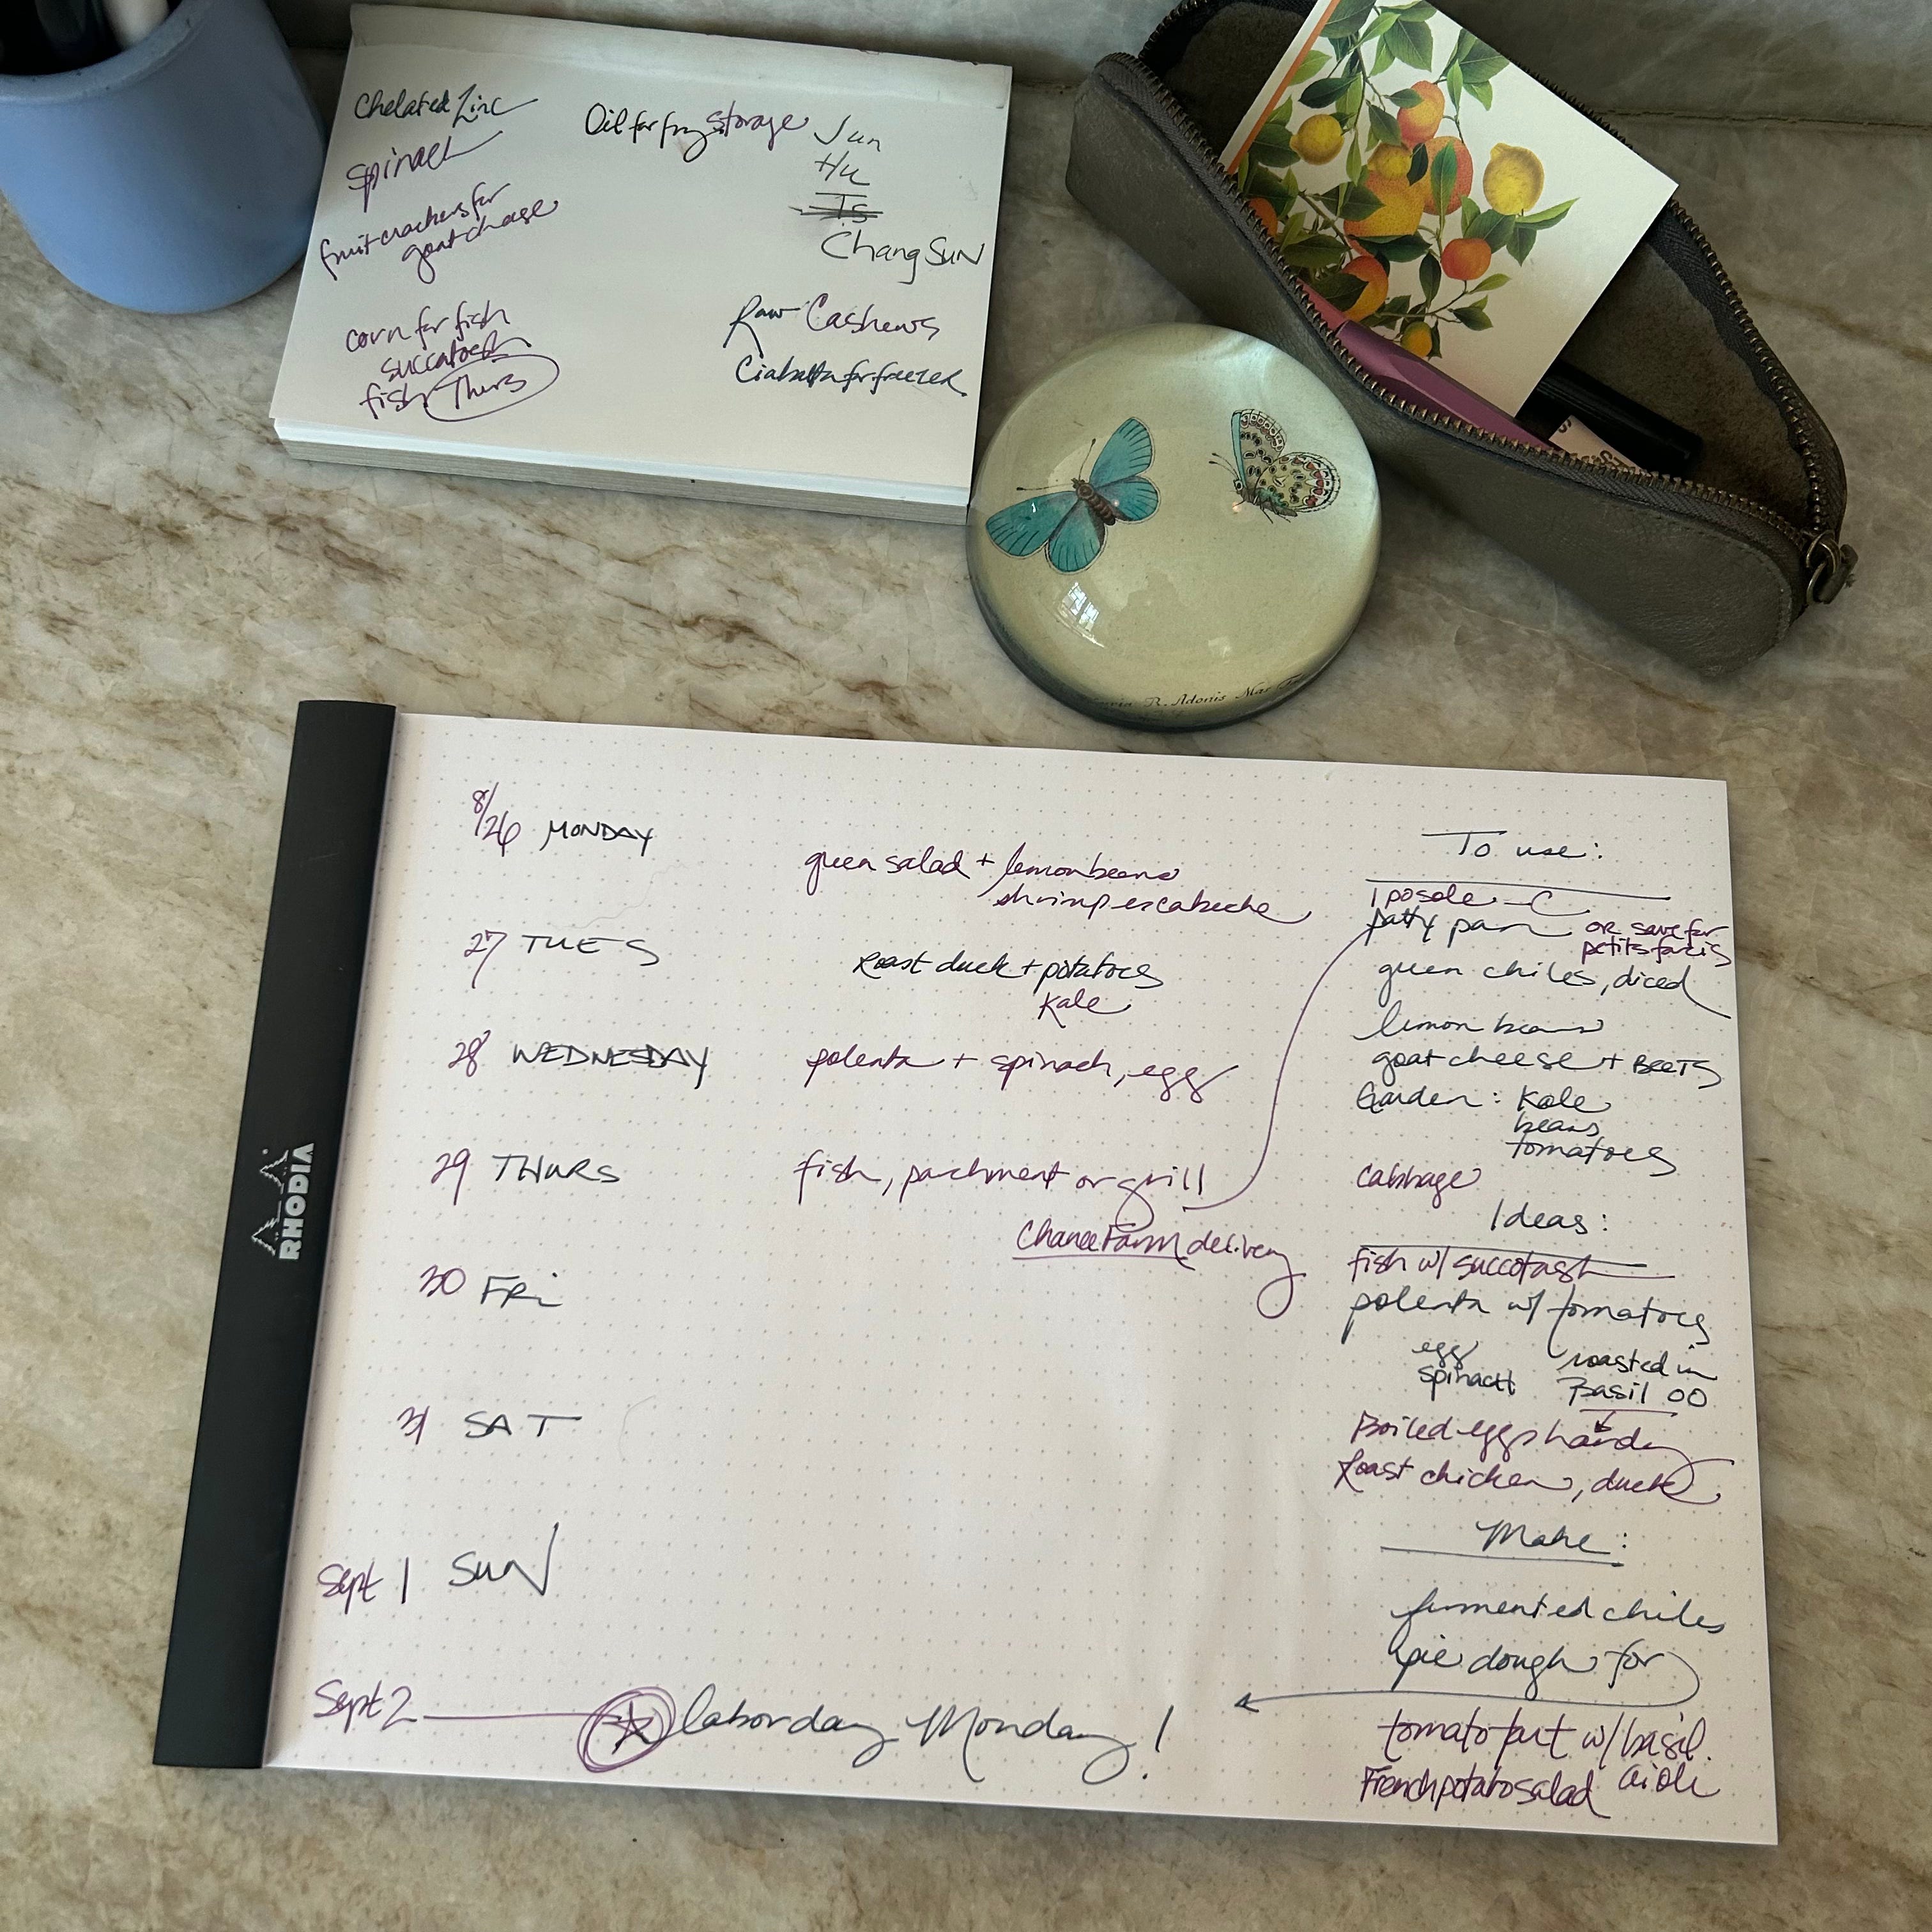 Chelated Zinc
spinach
fruit crackers for
goat chese
corn for fish
succatosh
fish Thurs
Oil for fry storage
Jun
Hu
Ts
Chang SuN
Raw Cashews
Ciabatta for freezer
R. Adonis
RHODIA
8/26 MONDAY
green salad + lemon beans
shrimp escabeche
27 TUES
Roast duck + potatoes
Kale
28 WEDNESDAY
polenta + spinach, egg
29 THURS
fish, parchment or grill
Farm delivery
30 FRi
31 SAT
Sept 1 SuN
Sept 2 labor day Monday!
To use:
1 posole - C
patty pan or save for
petits farcis
green chiles, diced
lemon beans
goat cheese + BEETS
Garden: Kale
beans
tomatoes
Cabbage
Ideas:
fish w/ succotash
polenta w/ tomatoes
egg roasted in
spinach Basil OO
Boiled eggs handy
Roast chicken, duck
Make:
fermented chiles
pie dough for
tomato tart w/ basil
aioli
French potato salad